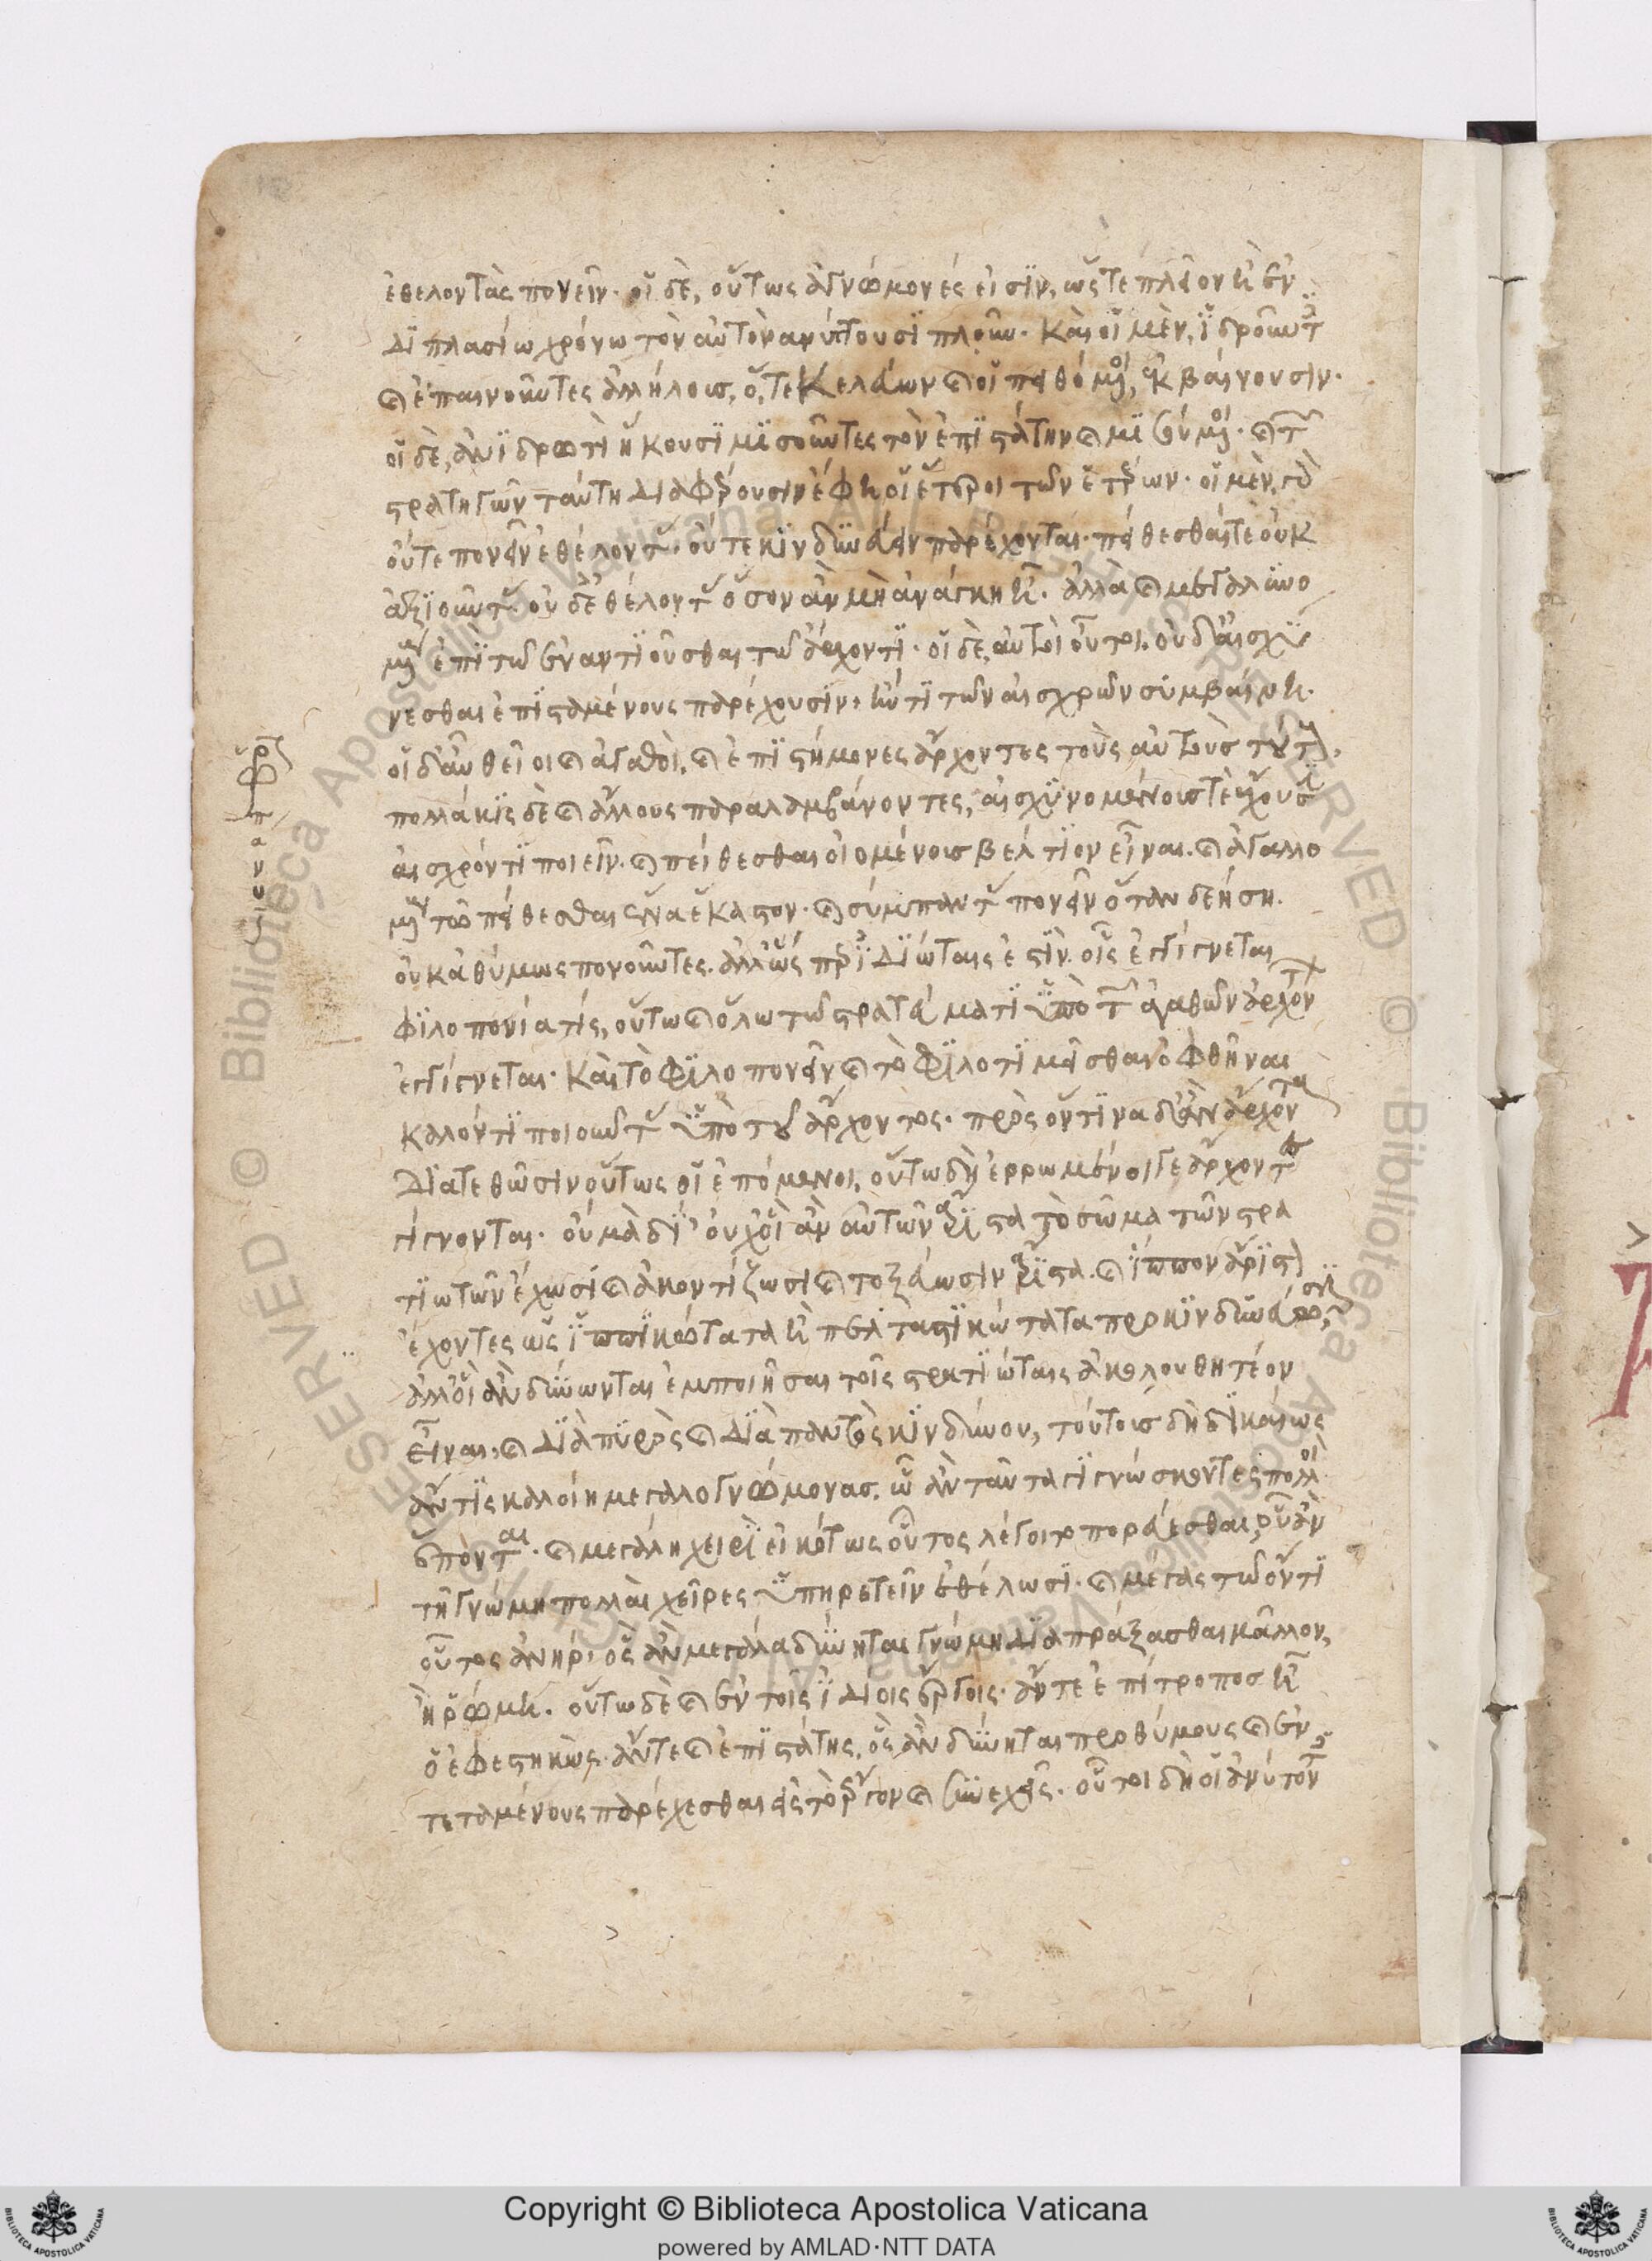 ἐθελοντὰς πονεῖν· οἱ δὲ, οὕτως ἀγνώμονές εἰσϊν, ὥςτε πλεῖον ἢ ἐν
διπλασίω χρόνω τὸν αὐτὸν ἀνύτουσϊ πλοῦν. Καὶ οἱ μὲν, ἱδροῦντ
καὶ ἐπαινοῦντες ἀλλήλους, ὅ,τε Κελεύων καὶ οἱ πειθόμενοι, ἐκβαίνουσιν·
οἱ δὲ, ἀνϊδρωτὶ ἥκουσϊ μϊσοῦντες τὸν ἐπϊστάτην καὶ μισούμενοι. καὶ τῶν
στρατηγῶν ταύτη διαφέρουσιν ἔφη οἱ ἕτεροι τῶν ἑτέρων· οἱ μὲν, γὰρ
οὔτε πονεῖν ἐθέλοντας. οὔτε κϊνδυνεύειν παρέχονται. πείθεσθαί τε οὐκ
ἀξϊοῦντας. οὐδ' ἐθέλοντας ὅσον ἂν μὴ ἀνάγκη ἦ. ἀλλὰ καὶ μεγαλυνο
μένους ἐπϊ τῶ ἐναντϊοῦσθαι τῶ ἄρχοντϊ. οἱ δὲ, αὐτοὶ οὗτοι. οὐδ' αἰσχύ
νεσθαι ἐπϊσταμένους παρέχουσϊν, ἤν τϊ τῶν αἰσχρῶν συμβαίνη.
οἱ δ' αὖ θεῖοι καὶ ἀγαθοὶ. καὶ ἐπϊστήμονες ἄρχοντες τοὺς αὐτοὺς τούτους,
πολλάκϊς δὲ καὶ ἄλλους παραλαμβάνοντες, αἰσχϋνομένους τὲ ἔχουσϊ
αἰσχρόν τϊ ποιεῖν. καὶ πείθεσθαι οἰομένους βέλτϊον εἶναι. καὶ ἀγαλλο
μένους τῶ πείθεσθαι ἕνα ἕκαστον. καὶ σύμπαντας πονεῖν ὅταν δεήση.
οὐκ ἀθύμως πονοῦντες. ἀλλ' ὥσπερ ϊδϊώταις ἐστϊν οἷς ἐγγίγνεται
φϊλοπονία τίς, οὕτω καὶ ὅλω τῶ στρατεύματϊ ὑπὸ τῶν ἀγαθῶν ἀρχόντων
ἐγγίγνεται. Καὶ τὸ φϊλοπονεῖν καὶ τὸ φϊλοτϊμεῖσθαι ὀφθῆναι
καλόν τϊ ποιοῦντας ὑπὸ τοῦ ἄρχοντος. πρὸς ὅντϊνα δ' ἂν ἄρχοντα
διατεθῶσϊν οὕτως οἱ ἑπόμενοι, οὕτω δὴ ἐρρωμένοι γε ἄρχοντες
γίγνονται. οὐ μὰ δϊ' οὐχ οἳ ἂν αὐτῶν ἄρϊστα τὸ σῶμα τῶν στρα
τϊωτῶν ἔχωσϊ καὶ ἀκοντίζωσϊ καὶ τοξεύωσϊν ἄρϊστα. καὶ ἵππον ἄρϊστον
ἔχοντες ὡς ϊππϊκώτατα ἢ πελταστϊκώτατα προκϊνδυνεύουσϊν,
ἀλλ' οἳ ἂν δύνωνται ἐμποιῆσαι τοῖς στρατϊώταις ἀκολουθητέον
εἶναι, καὶ διὰ πϋρὸς καὶ διὰ παντὸς κϊνδύνου, τούτους δὴ δϊκαίως
ἄν τϊς καλοίη μεγαλογνώμονας. ὧ ἂν ταῦτα γϊγνώσκοντες πολλοὶ
ἕπονται. καὶ μεγάλη χειρϊ εἰκότως οὗτος λέγοιτο πορεύεσθαι, οὗ ἂν
τῆ γνώμη πολλαὶ χεῖρες ὑπηρετεῖν ἐθέλωσϊ. καὶ μέγας τῶ ὄντϊ
οὗτος ἀνὴρ, ὃς ἂν μεγάλα δύνηται γνώμη διαπράξασθαι μᾶλλον,
ἢ ῥώμη. οὕτω δὲ καὶ ἐν τοῖς ϊδίοις ἔργοις. ἄν τε ἐπίτροπος ἦ
ὁ ἐφεστηκὼς. ἄν τε καὶ ἐπϊστάτης, ὃς ἂν δύνηται προθύμους καὶ ἐν
τεταμένους παρέχεσθαι εἰς τὸ ἔργον καὶ συνεχεῖς. οὗτοι δὴ οἱ ἀνύτοντ
Copyright © Biblioteca Apostolica Vaticana
powered by AMLAD·NTT DATA